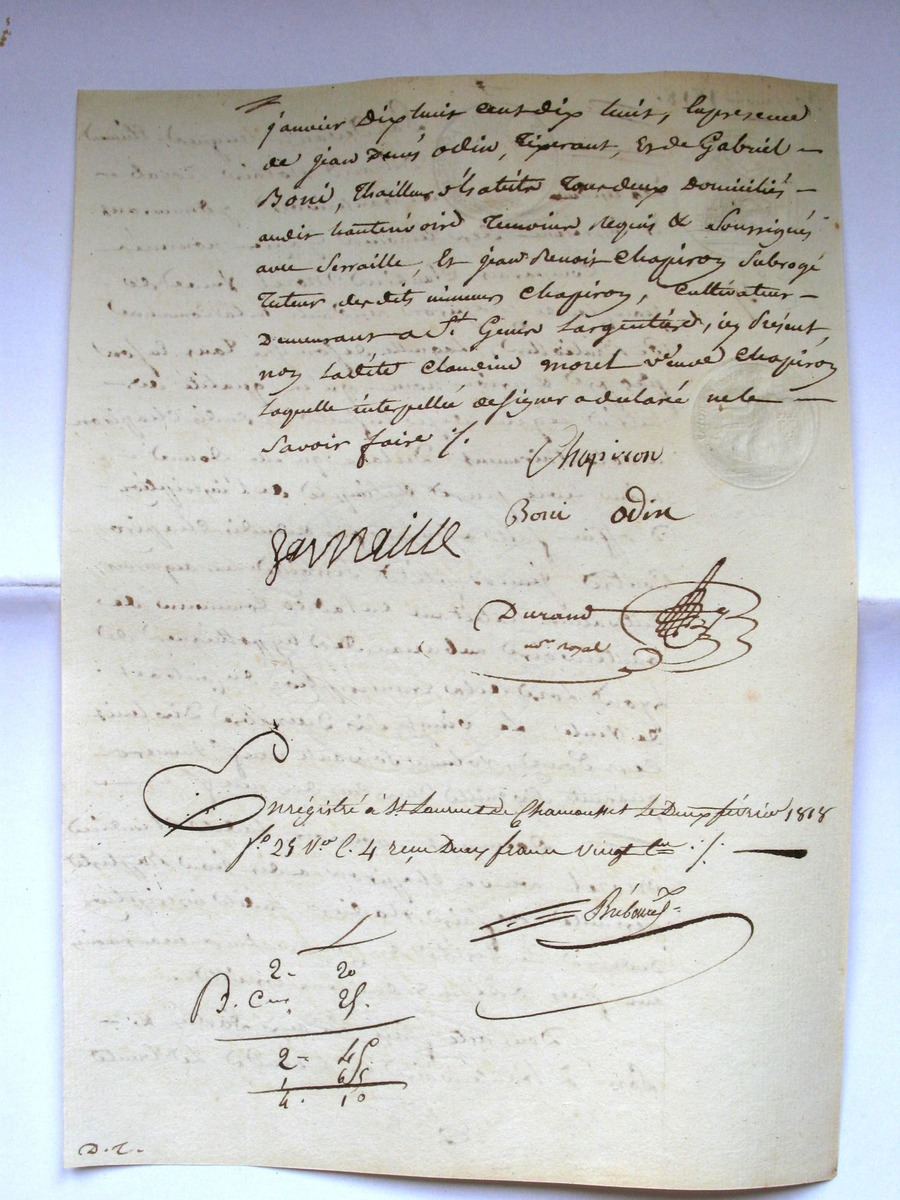 janvier Dix huit cent dix huit, En presence
de jean Denis odin, Tixerant, Et de Gabriel -
Boni, Thailleur d'habits Tous deux Domiciliés -
audit hauterivoire Temoins Requis & Soussignés
avec Serraille, Et jean Benoit Chapiron Subrogé
Tuteur desdits mineurs Chapiron, Cultivateur -
Demeurant a St. Genis Largentière, icy Présent
non Ladite Claudine morel veuve Chapiron
Laquelle interpellée de Signer a déclaré ne le -
Savoir faire /.
Chapiron
Boni odin
Sarraille
Durand
nre. royal
Enregistré à St Laurent de Chamousset Le Deux février 1818
fo. 25 Vo C. 4 reçu Deux francs vingt Cen ./. -
2- 20
25.
2- 45
1 65
4. 10
D.T.